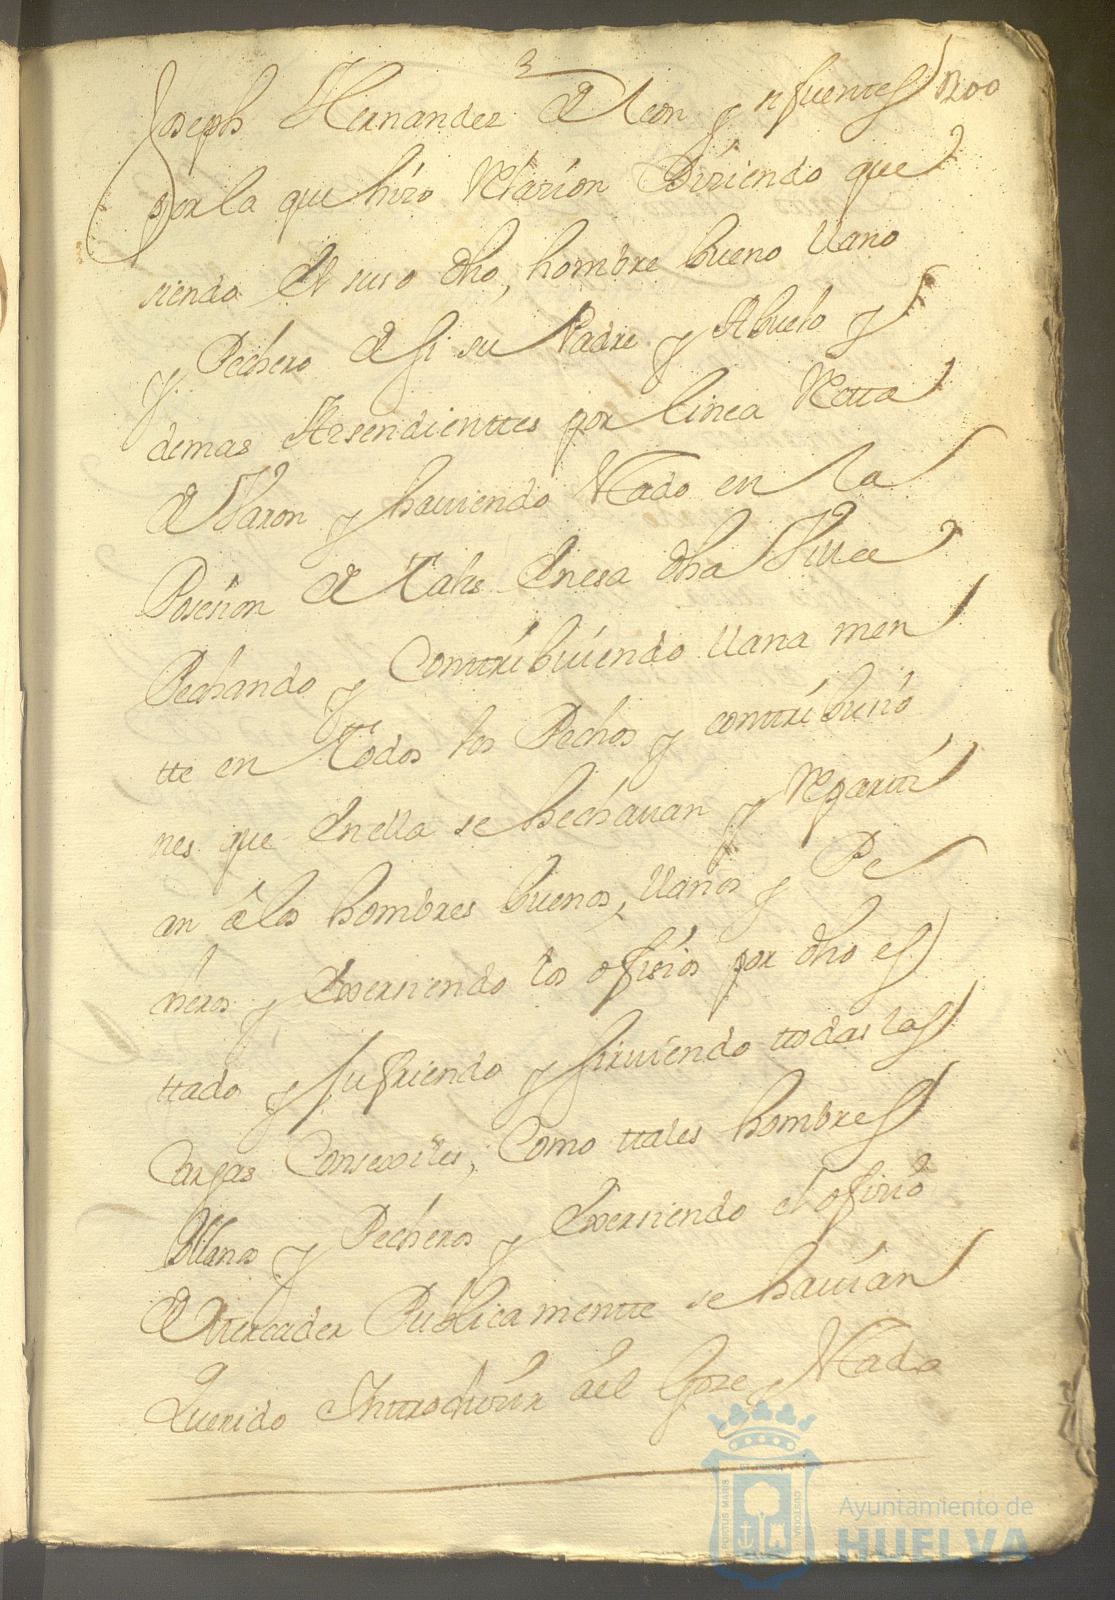 3
Joseph Hernandez de Leon y nfuentes 200
por la que hizo Relazion Diziendo que
siendo el suso dho, hombre bueno llano
y Pechero de si su Padre y Abuelo y
demas Assendienttes por linea Recta
de Varon y haviendo estado en la
Posesion de tales enesa dha Villa
Pechando y Conttribuiendo llana men
tte en todos los Pechos y conttribuzio
nes que enella se hechavan y Repartti
an a los hombres buenos, llanos y Pe
cheros y exersiendo los ofisios por dho es
ttado y sufriendo y sirviendo ttodas las
Cargas Consexiles, Como ttales hombres
llanos y Pecheros y exersiendo el ofizio
de Mercader Publicamentte se havian
Querido Inttroduzir ael Goze y estado
Ayuntamiento de
HUELVA